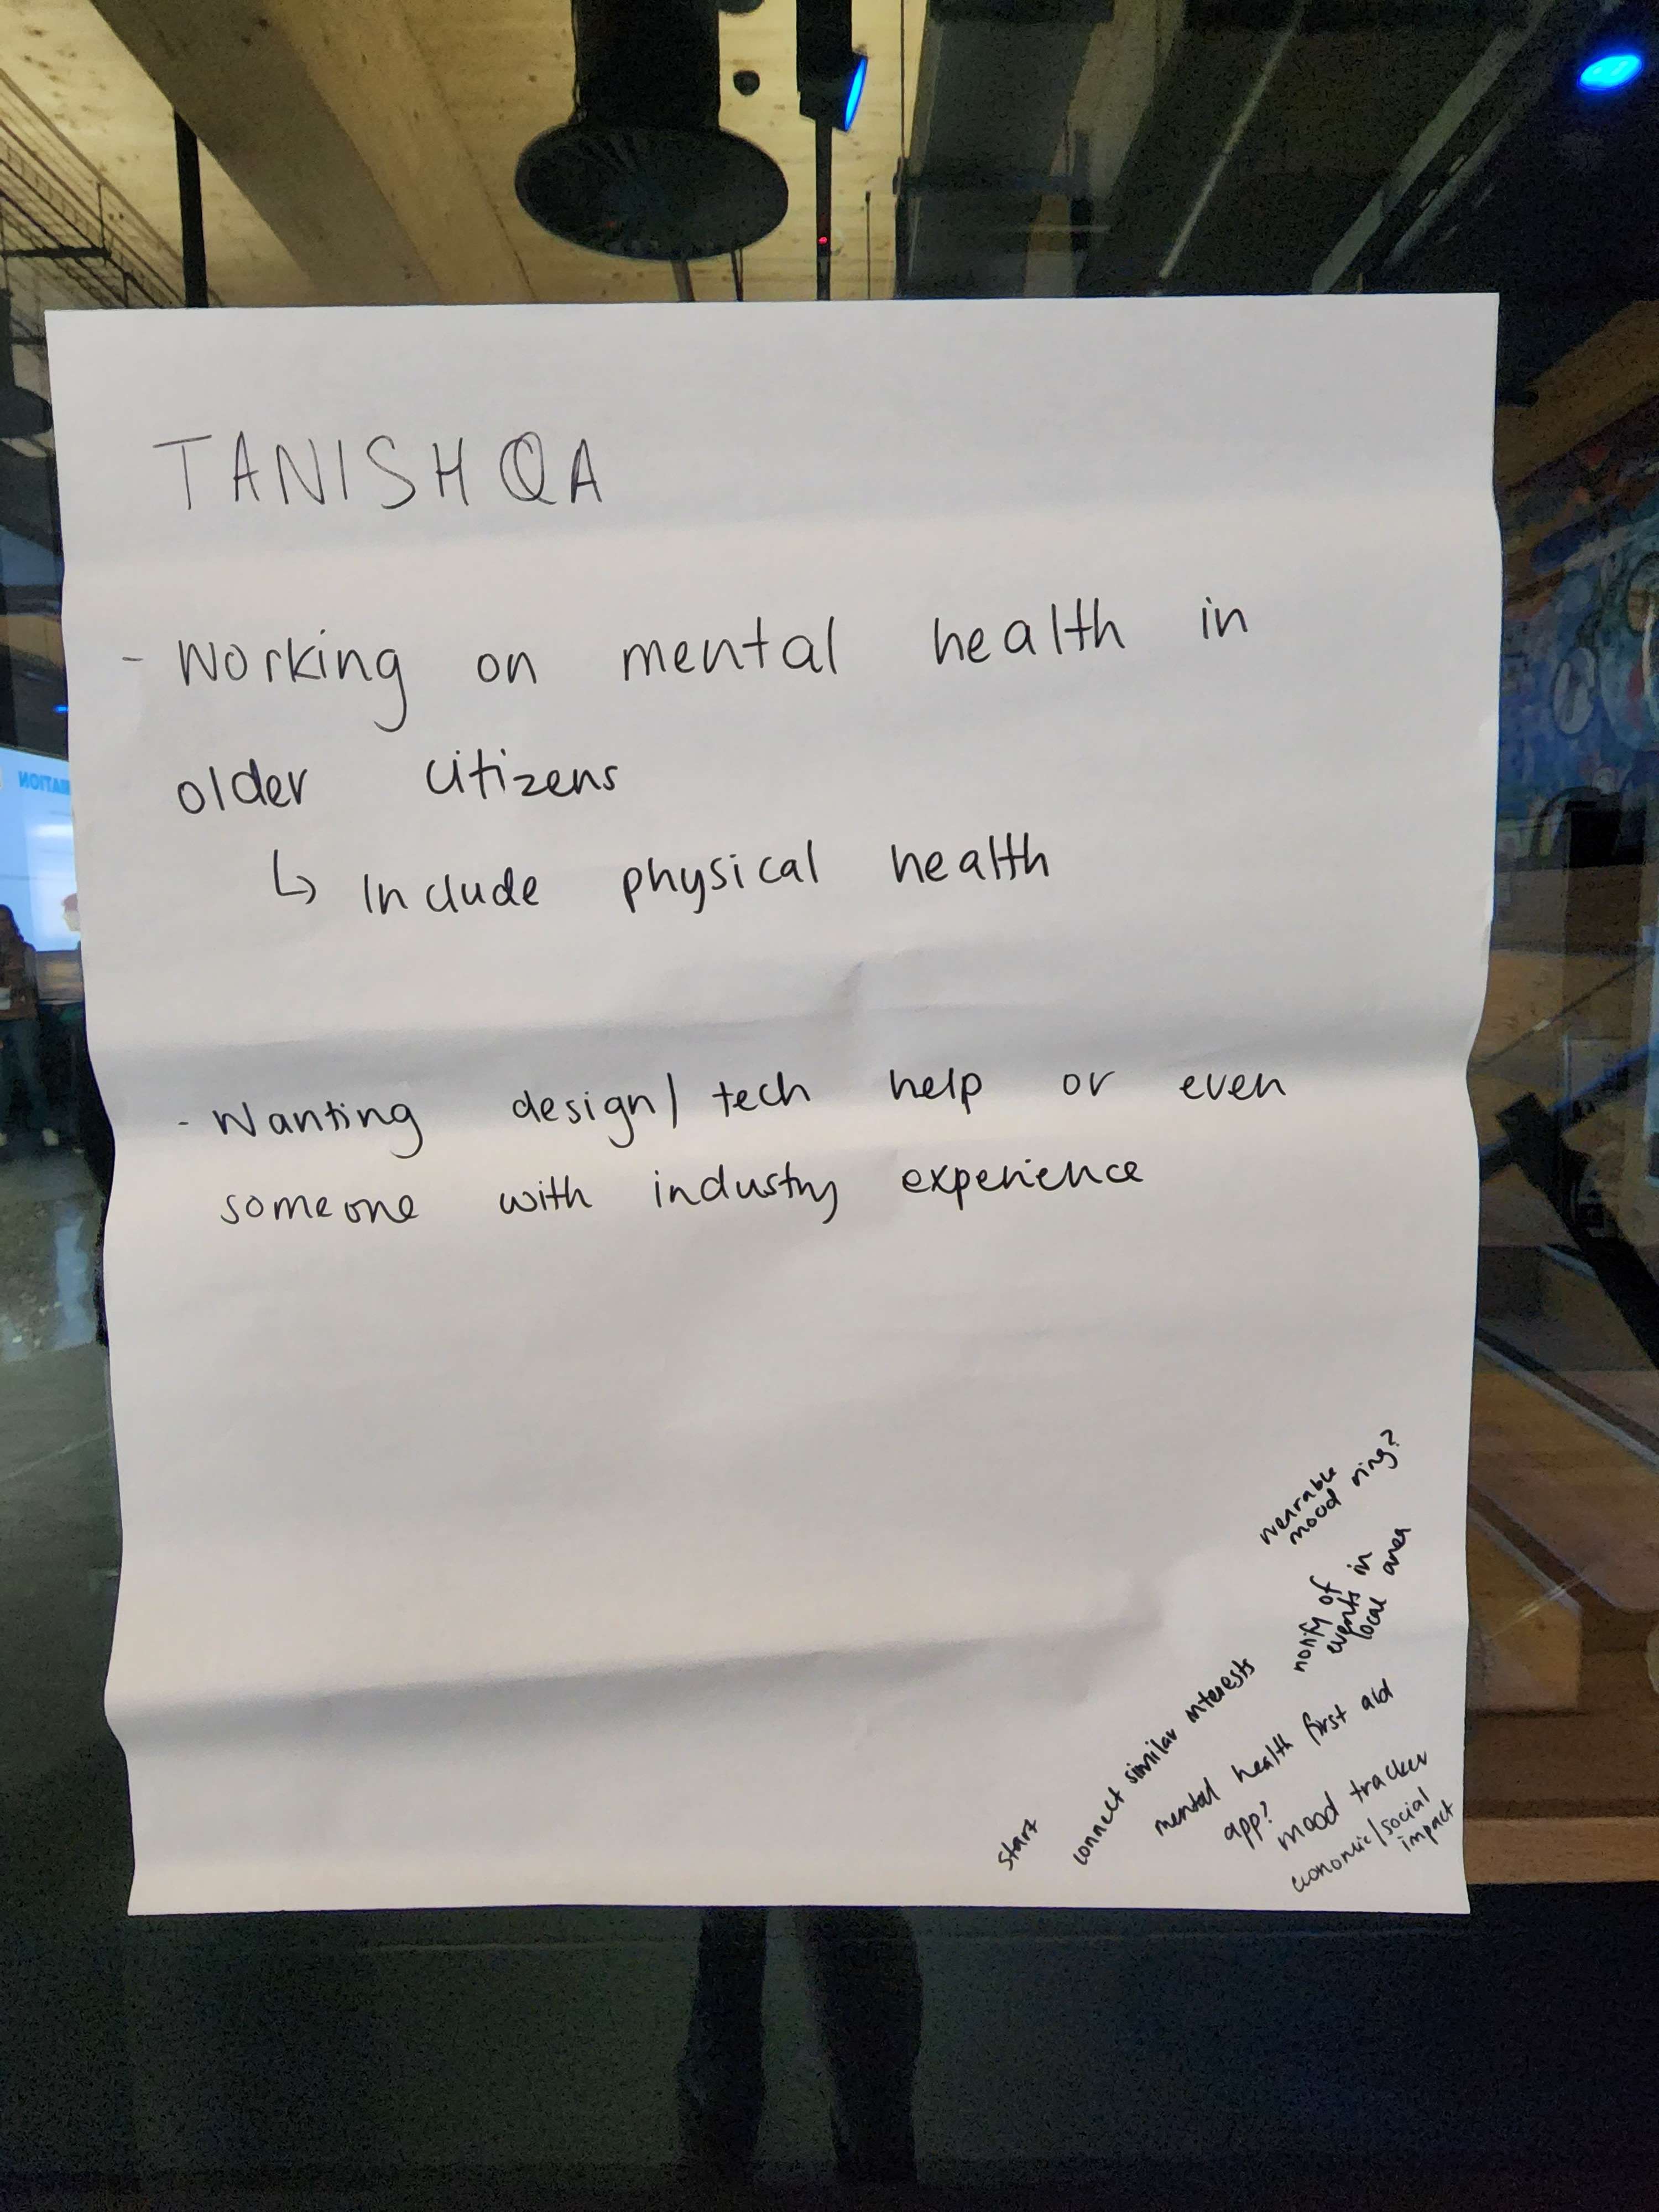 TANISHQA
- Working on mental health in
older citizens
↳ Include physical health
- Wanting design/tech help or even
someone with industry experience
wearable
mood ring?
notify of
events in
local area
start
connect similar interests
mental health first aid
app?
mood tracker
economic/social
impact